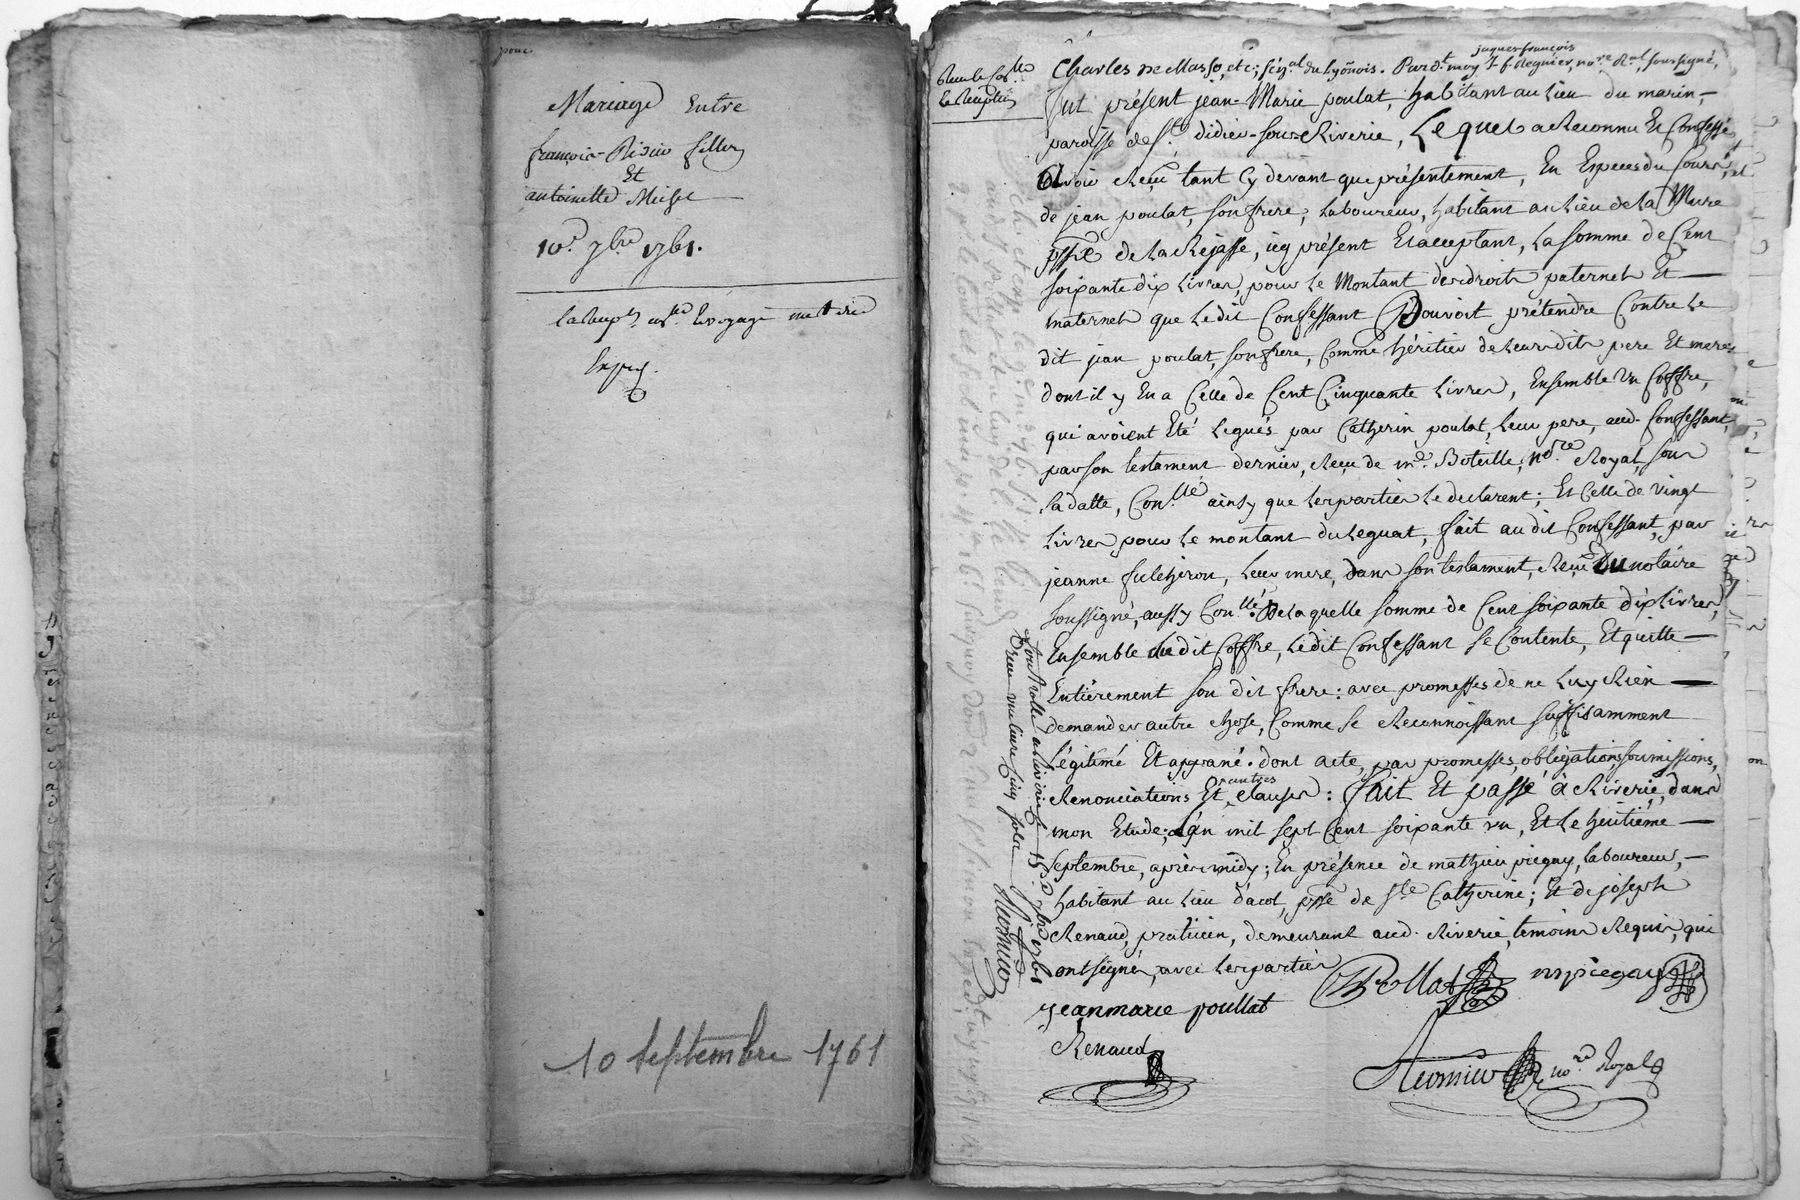 pour
Mariage Entre
françois
Et
antoinette
10.e 7bre 1761.
10 Septembre 1761
jaques françois
Charles De Masso, etc; sén.al du Lyonois. Pard.t moy J f Regnier, no.re R.al soussigné,
fut présent jean-Marie poulat, habitant au Lieu du marin,
paroisse de S.t didier-sous-Riverie, Lequel a Reconnu Et Confessé
avoir Reçu tant Cy devant que présentement, En Especes du Cours,
de jean poulat, son frere, Laboureur, habitant au Lieu de La Mure
psse de La Rajasse, icy présent Et acceptant, La somme de Cent
soixante dix Livres, pour Le Montant des droits paternels Et
maternels que Ledit Confessant Pouvoit prétendre Contre Le
dit jean poulat, son frere, Comme héritier de Leursdits pere Et mere,
dont il y En a Celle de Cent Cinquante Livres, Ensemble Un Coffre,
qui avoient Eté Legués par Catherin poulat, Leur pere, aud. Confessant,
par son testament dernier, Reçu de m.e Boteille, no.re Royal, sous
sa datte, Con.llé ainsy que Les parties Le declarent; Et Celle de vingt
Livres pour Le montant du Leguat, fait au dit Confessant, par
jeanne fulchiron, Leur mere, dans son testament, Reçu Du notaire
soussigné, aussy Con.llé De Laquelle somme de Cent soixante dix Livres,
Ensemble dudit Coffre, Ledit Confessant se Contente, Et quitte
Entièrement son dit frere: avec promesses de ne Luy Rien
demander autre chose, Comme se Reconnoissant suffisamment
Légitimé Et appané. dont acte, par promesses, obligations, soumissions,
Renonciations Et autres Clauses: fait Et passé à Riverie, dans
mon Etude; L'an mil sept Cent soixante un, Et Le huitième
Septembre, après midy; En présence de mathieu piegay, Laboureur,
habitant au Lieu d'acol, psse de S.te Catherine; Et de joseph
Renaud, praticien, demeurant aud. Riverie, temoins Requis, qui
ont signé, avec Les parties
Pollat
mpiegay
jeanmarie poullat
Renaud
no.re Royal